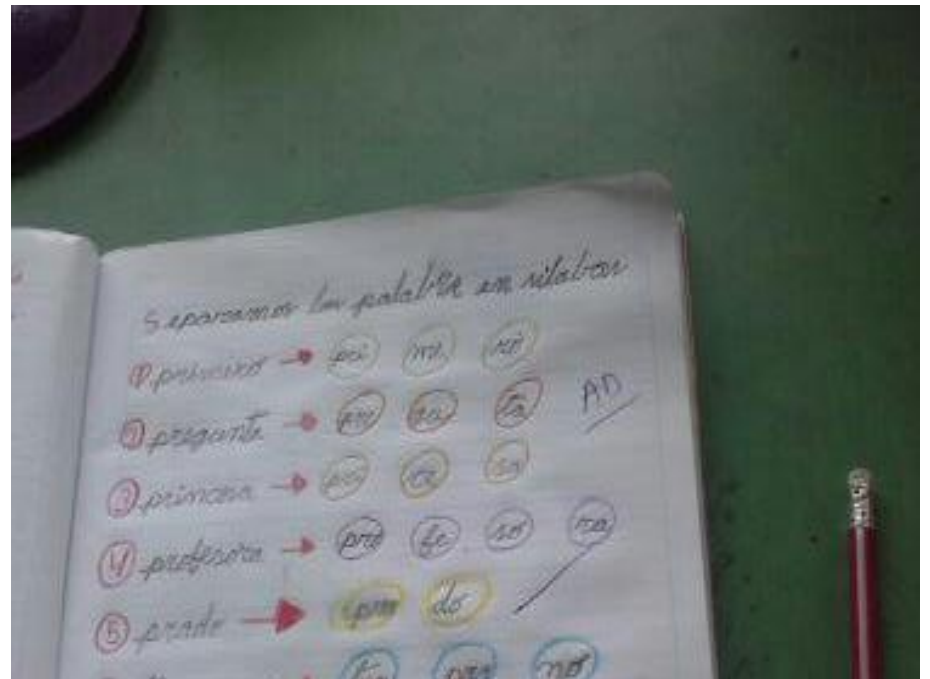 Separamos la palabra en silabas
① primero → pri me ro
② pregunta → pre gu ta
③ princesa → pri ce sa
AD
④ profesora → pro fe so ra
⑤ prado → pra do
no